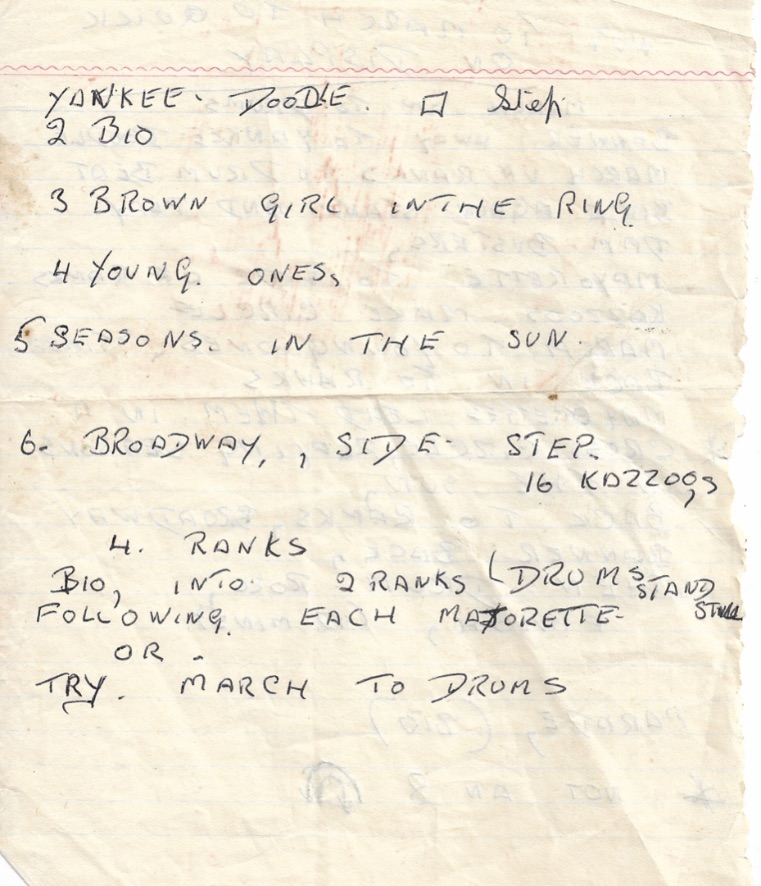 YANKEE- DOODLE. □ Step
2 BIO
3 BROWN GIRL IN THE RING
4 YOUNG. ONES,
5 SEASONS. IN THE SUN.
6. BROADWAY, , SIDE- STEP.
16 KAZZOO,S
4. RANKS
BIO, INTO. 2 RANKS (DRUMS STAND STILL
FOLLOWING. EACH MAJORETTE-
OR -
TRY. MARCH TO DRUMS